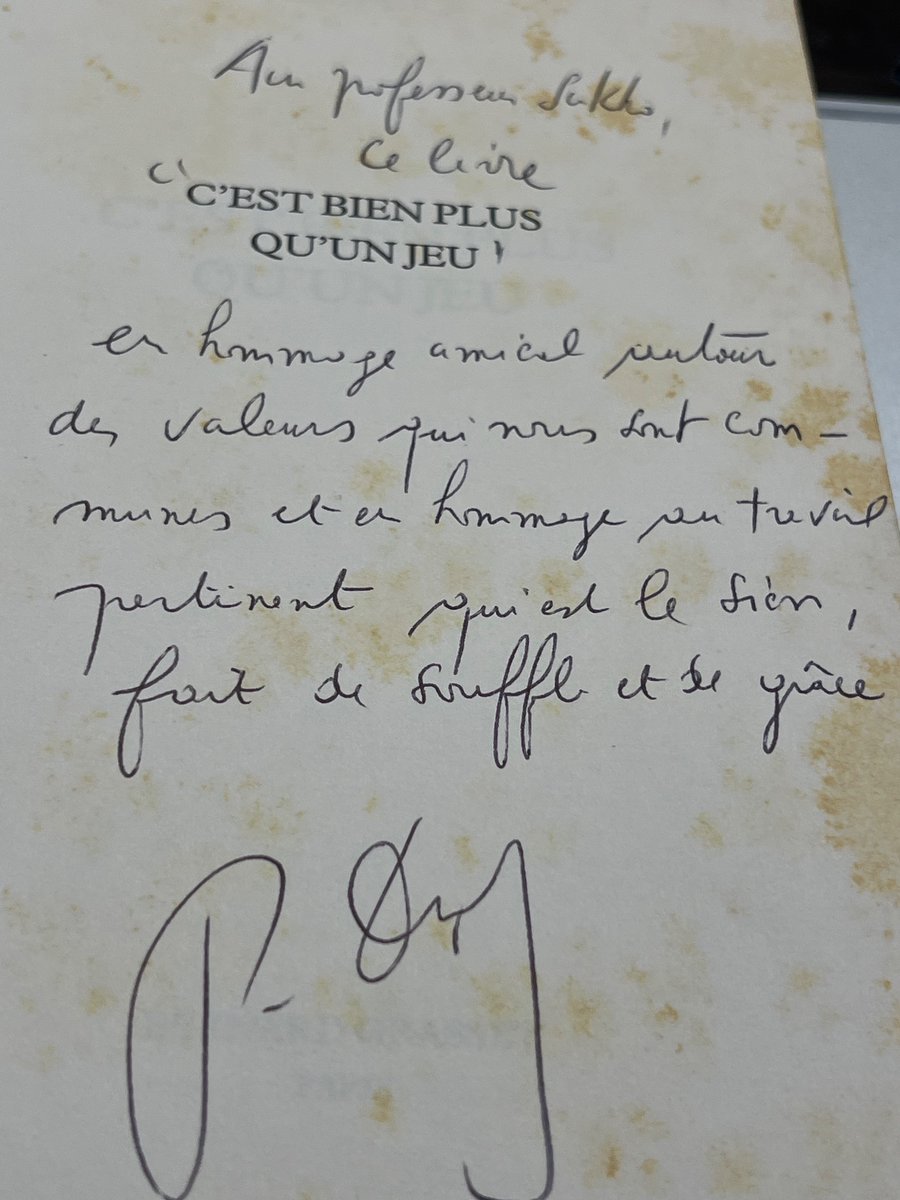 Au professeur Sakho,
Ce livre
" C'EST BIEN PLUS
QU'UN JEU "
en hommage amical autour
des valeurs qui nous sont com-
munes et en hommage au travail
pertinent qui est le sien,
fait de souffle et de grâce